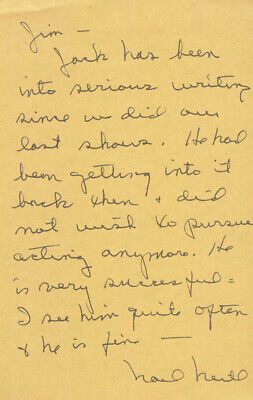 Jim —
Jack has been
into serious writing
since we did our
last shows. He had
been getting into it
back then & did
not wish to pursue
acting anymore. He
is very successful =
I see him quite often
& he is fine —
Noel Neill